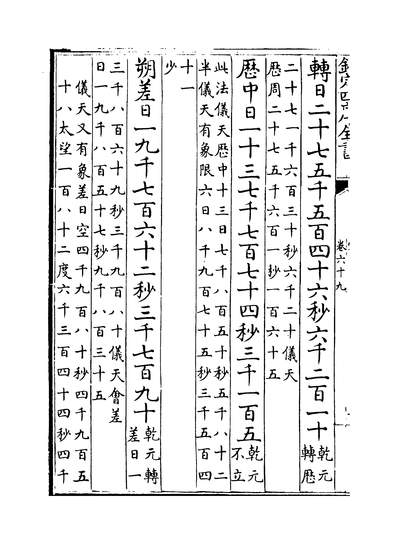 欽定四庫全書
卷六十九
轉日二十七五千五百四十六秒六千二百一十乾元轉歷
二十七一千六百三十秒六千二十儀天
歷周二十七五千六百一秒一百六十五
歷中日一十三七千七百七十四秒三千一百五乾元不立
此法儀天歷中十三日七千八百五十秒五千八十二
半儀天有象限六日八千九百七十五秒三千五百四
十一
秒
朔差日一九千七百六十二秒三千七百九十乾元轉差日一
三千八百六十九秒三千九百八十儀天會差
日一九千八百五十七秒九千八百三十五
儀天又有象差日空四千九百八十秒四千九百五
十八太望一百八十二度六千三百四十四秒四千